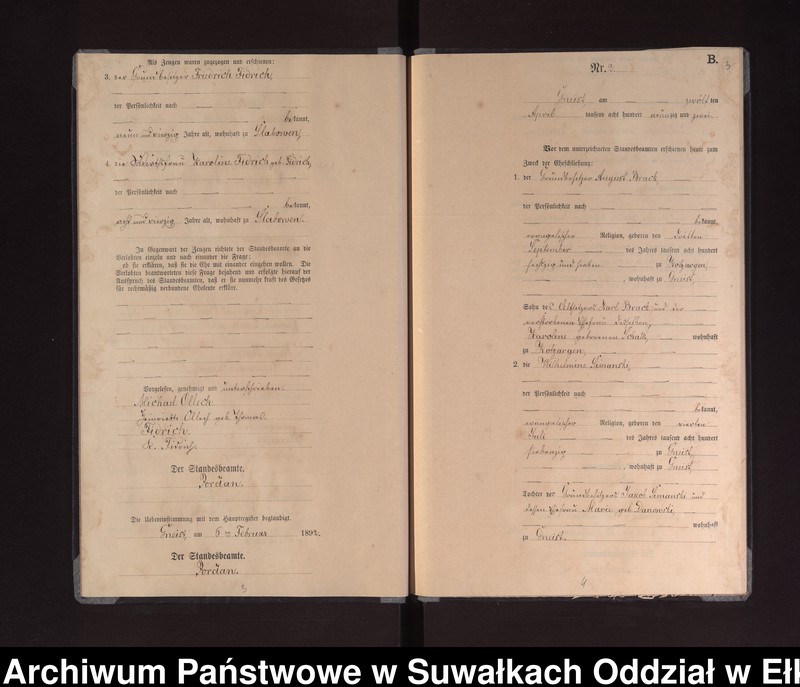 Als Zeugen waren zugezogen und erschienen:
3. der Grundbesitzer Friedrich Fidrich,
der Persönlichkeit nach
bekannt,
neun und vierzig Jahre alt, wohnhaft zu Glabowen,
4. die Karoline Fidrich geb. Fidrich,
der Persönlichkeit nach
bekannt,
acht und vierzig Jahre alt, wohnhaft zu Glabowen.
In Gegenwart der Zeugen richtete der Standesbeamte an die
Verlobten einzeln und nach einander die Frage:
ob sie erklären, daß sie die Ehe mit einander eingehen wollen. Die
Verlobten beantworteten diese Frage bejahend und erfolgte hierauf der
Ausspruch des Standesbeamten, daß er sie nunmehr kraft des Gesetzes
für rechtmäßig verbundene Eheleute erkläre.
Vorgelesen, genehmigt und unterschrieben.
Michael Olloch
Henriette Olloch geb.
Fidrich.
K. Fidrich.
Der Standesbeamte.
Jordan.
Die Uebereinstimmung mit dem Hauptregister beglaubigt.
Gneist, am 6ten Februar 1892.
Der Standesbeamte.
Jordan.
3
B.
3
Nr. 3.
Gneist am zwölften
April tausend acht hundert neunzig und zwei
Vor dem unterzeichneten Standesbeamten erschienen heute zum
Zweck der Eheschließung:
1. der Grundbesitzer August Brack,
der Persönlichkeit nach
bekannt,
evangelischer Religion, geboren den dritten
September des Jahres tausend acht hundert
sechszig und sieben zu
, wohnhaft zu Gneist,
Sohn des Karl Brack und der
verstorbenen Ehefrau desselben,
Karoline geborenen wohnhaft
zu
2. die Wilhelmine Simanski,
der Persönlichkeit nach
bekannt,
evangelischer Religion, geboren den vierten
Juli des Jahres tausend acht hundert
siebenzig zu Gneist,
, wohnhaft zu Gneist,
Tochter der Grundbesitzers Jakob Simanski und
dessen Ehefrau Marie geb. Danowski,
wohnhaft
zu Gneist.
4
Archiwum Państwowe w Suwałkach Oddział w Ełk